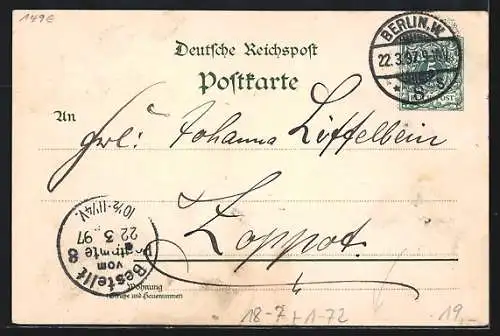 149E
BERLIN.W.
22.3.97.9-10V.
* 8 c
Deutsche Reichspost
Postkarte
An
Frl: Johanna Löffelbein
Zoppot.
Bestellt
vom
Postamte 8
22 3 97
10½-11¼V.
Wohnung
(Straße und Hausnummer)
18-7 + 1-72
19,-